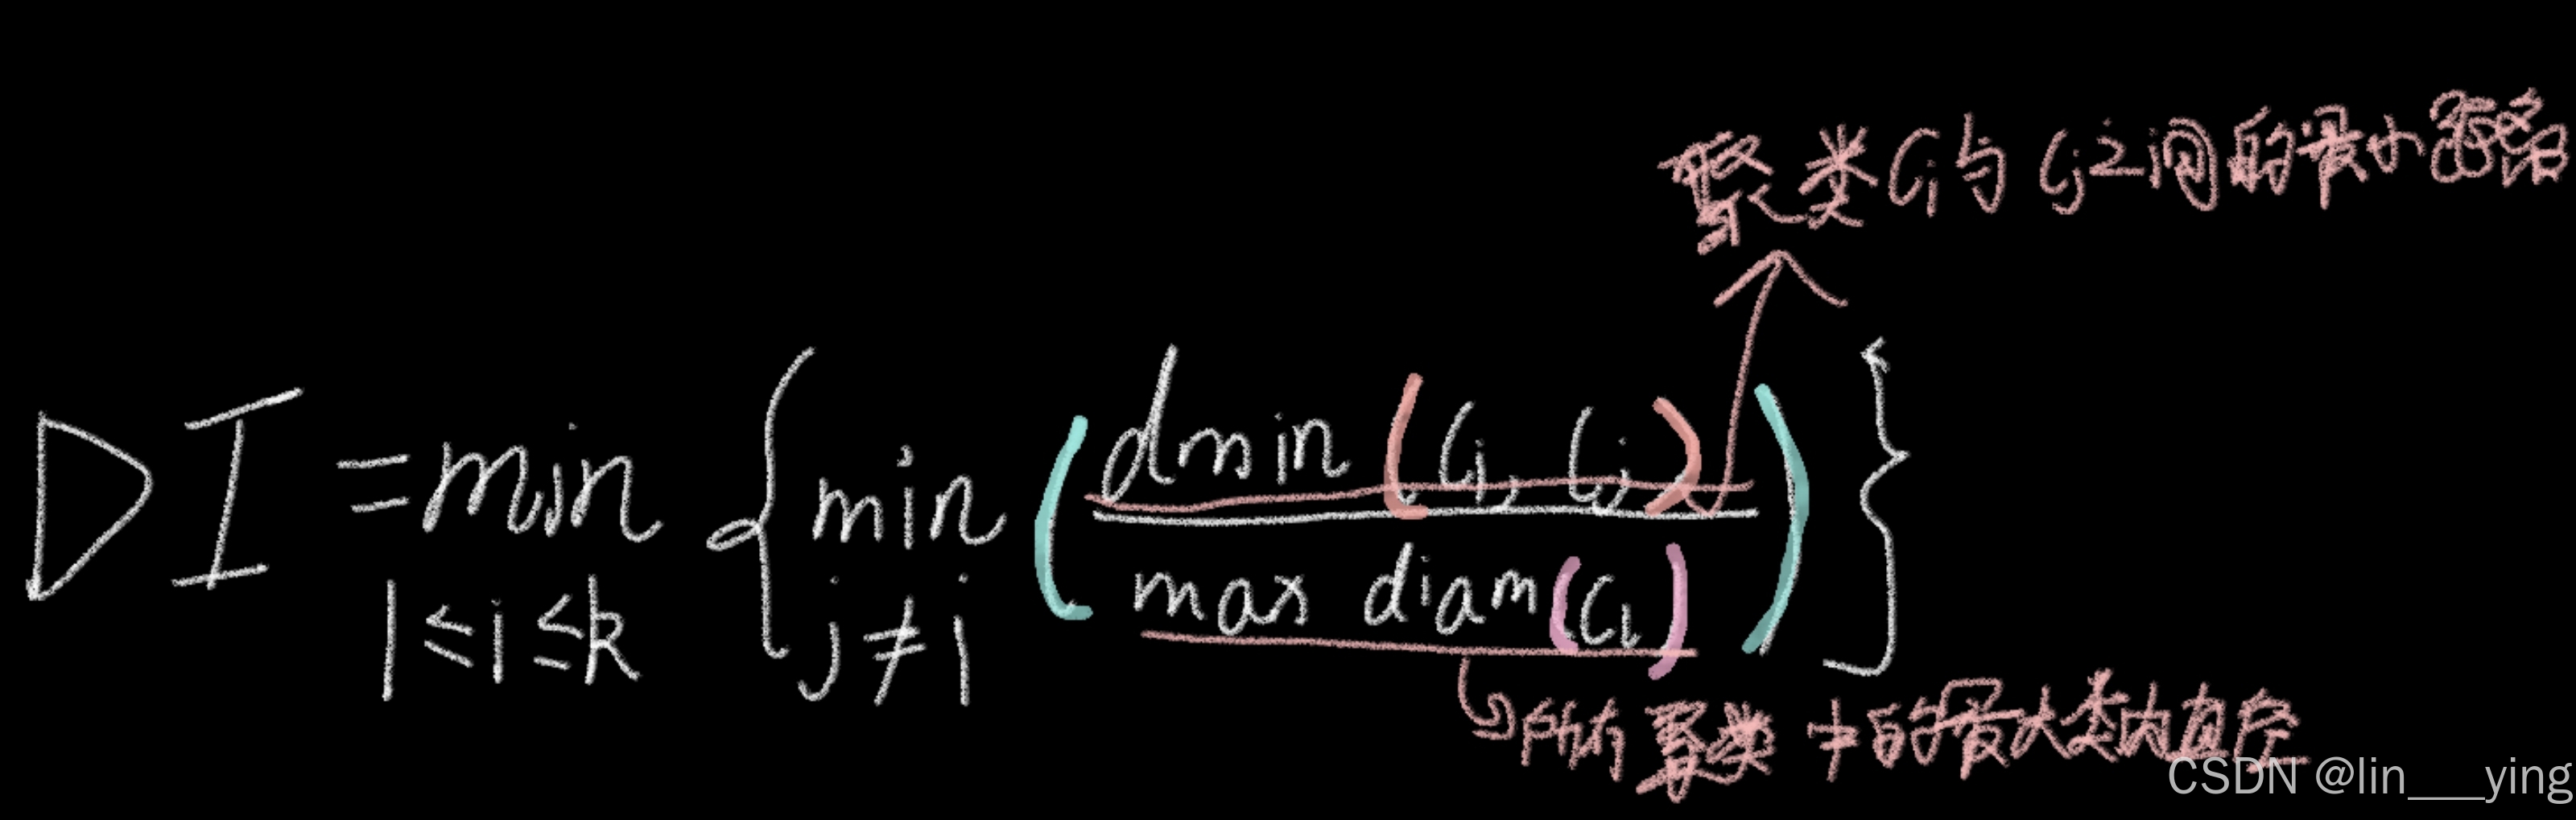 聚类Ci与Cj之间的最小距离
DI = min { min ( dmin (Ci, Cj) / max diam(Cl) ) }
1≤i≤k j≠i
所有聚类中的最大类内直径
CSDN @lin___ying